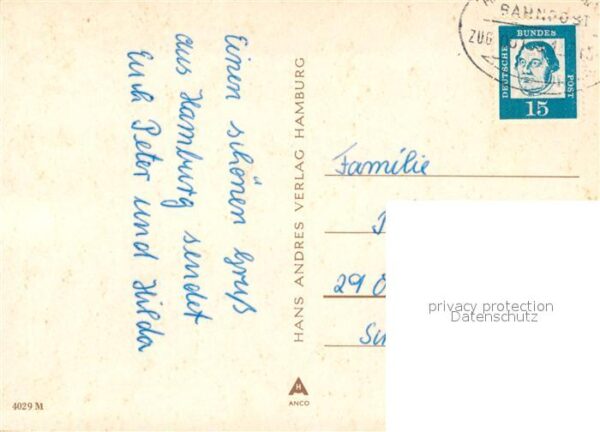 Einen schönen Gruß
aus Hamburg sendet
Euch Peter und Hilda
HANS ANDRES VERLAG HAMBURG
BAHNPOST
ZUG
DEUTSCHE BUNDES POST
15
Familie
29 O
privacy protection
Datenschutz
H
ANCO
4029 M